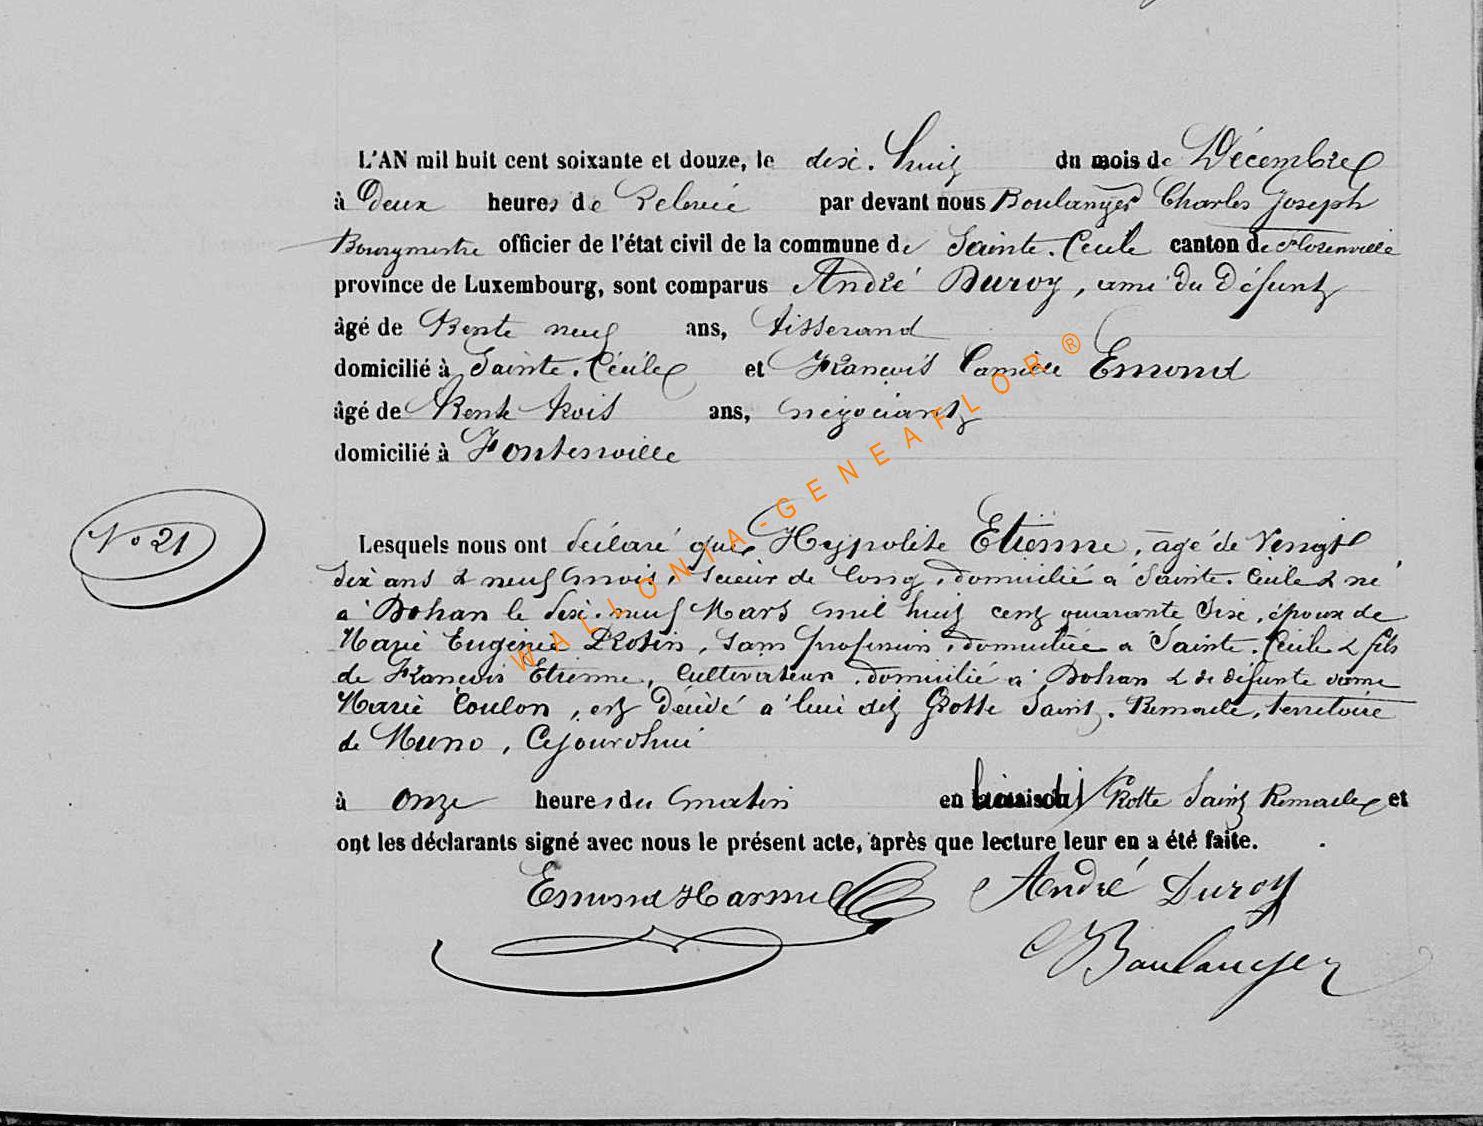 L'AN mil huit cent soixante et douze, le dix-huit du mois de Décembre
à Deux heures de Relevée par devant nous Boulanger Charles Joseph
Bourgmestre officier de l'état civil de la commune de Sainte-Cécile canton de Florenville
province de Luxembourg, sont comparus André Duroy, ami du Défunt
âgé de trente neuf ans, tisserand
domicilié à Sainte-Cécile et François Camille Emond
âgé de trente trois ans, négociant
domicilié à Fontenoille
No 21
Lesquels nous ont déclaré que Hypolite Etienne, agé de vingt
six ans & neuf mois, scieur de long, domicilié à Sainte-Cécile & né
à Bohan le dix-neuf Mars mil huit cent quarante six, époux de
Marie Eugénie Rosin, sans profession, domiciliée à Sainte-Cécile & fils
de François Etienne, Cultivateur, domicilié à Bohan & de défunte dame
Marie Coulon, est décédé à lieu dit Grotte Saint-Remacle, territoire
de Muno, Cejourdhui
à onze heures du matin en lieu dit Grotte Saint Remacle et
ont les déclarants signé avec nous le présent acte, après que lecture leur en a été faite.
Emond André Duroy
Boulanger
WALLONIA-GENEAFLOR®